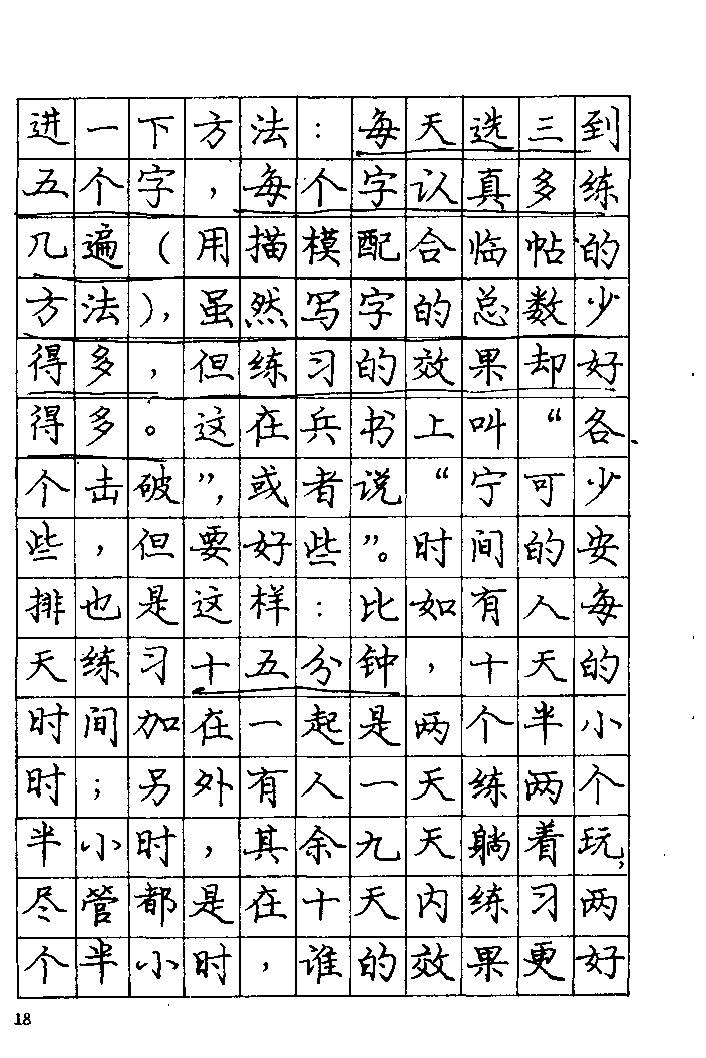 进一下方法：每天选三到
五个字，每个字认真多练
几遍（用描模配合临帖的
方法），虽然写字的总数少
得多，但练习的效果却好
得多。这在兵书上叫“各
个击破”，或者说“宁可少
些，但要好些”。时间的安
排也是这样：比如有人每
天练习十五分钟，十天的
时间加在一起是两个半小
时；另外有人一天练两个
半小时，其余九天躺着玩，
尽管都是在十天内练习两
个半小时，谁的效果更好
18